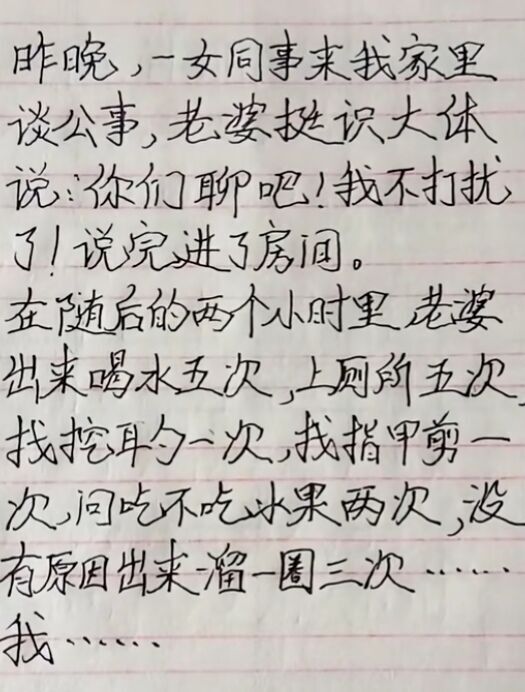 昨晚,一女同事来我家里
谈公事,老婆挺识大体
说:你们聊吧!我不打扰
了!说完进了房间。
在随后的两个小时里 老婆
出来喝水五次,上厕所五次,
找挖耳勺一次,找指甲剪一
次,问吃不吃水果两次,没
有原因出来溜一圈三次……
我……